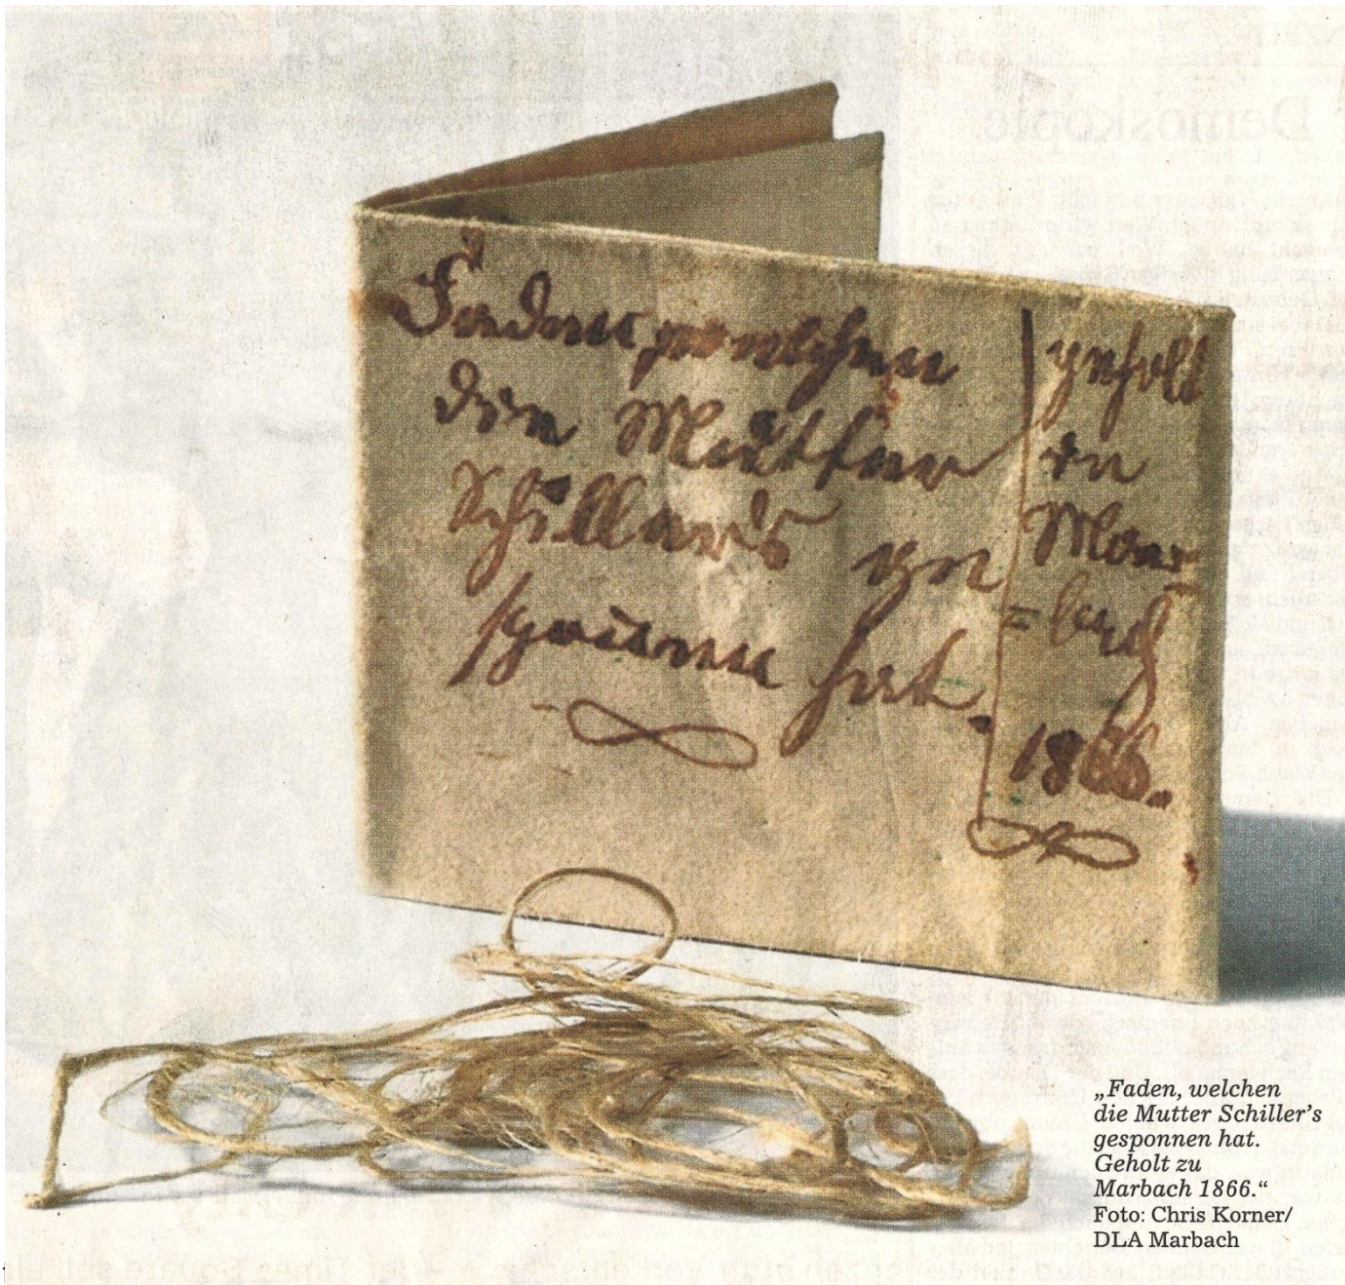 Faden welchen
die Mutter
Schiller's ge
sponnen hat.
geholt
in
Mar
=bach
1866.
„Faden, welchen
die Mutter Schiller’s
gesponnen hat.
Geholt zu
Marbach 1866.“
Foto: Chris Korner/
DLA Marbach